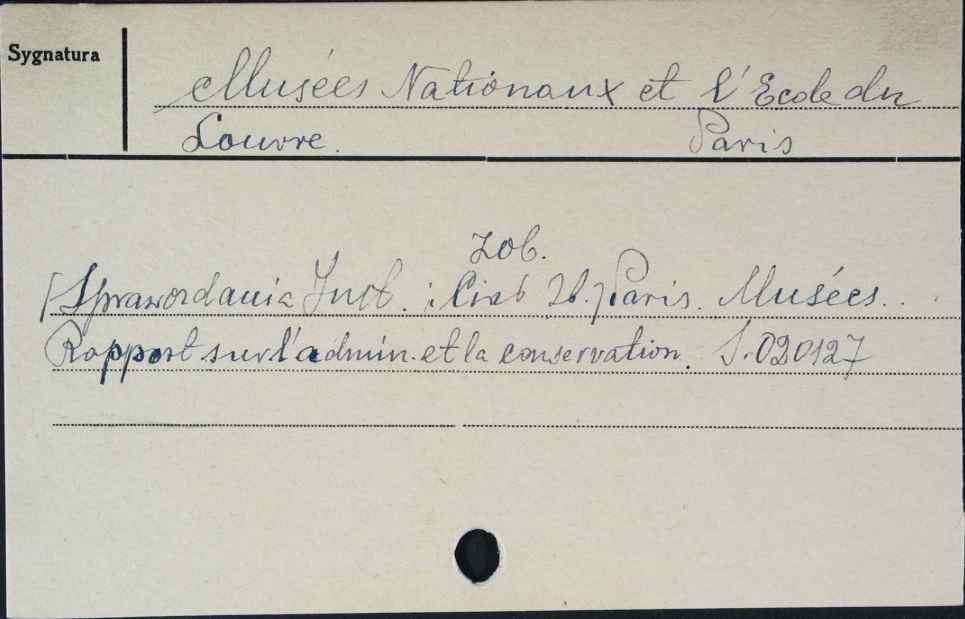 Sygnatura
Musées Nationaux et l'Ecole du
Louvre. Paris
Zob.
Sprawozdania Inst. Paris. Musées..
Rapport sur l'admin. et la conservation. S.020127